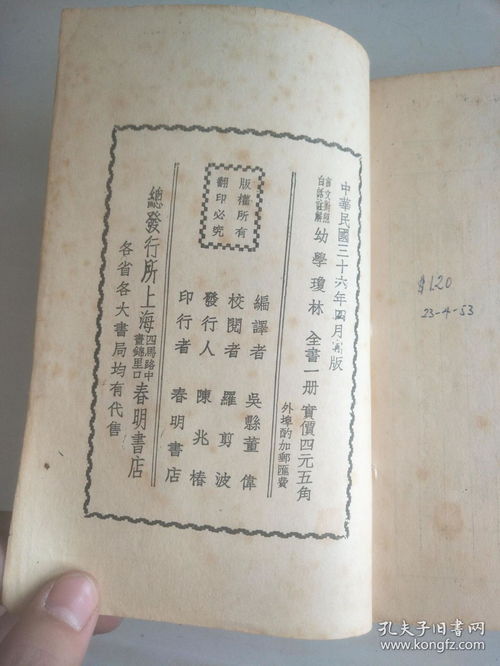 中華民國三十六年四月再版
言文對照
白話註解
幼學瓊林 全書一册 實價四元五角
外埠酌加郵匯費
版權所有
翻印必究
編譯者 吳縣董偉
校閱者 羅剪波
發行人 陳兆椿
印行者 春明書店
總發行所上海四馬路中
畫錦里口
春明書店
各省各大書局均有代售
$1.20
23-4-53
孔夫子旧书网
www.kongfz.com